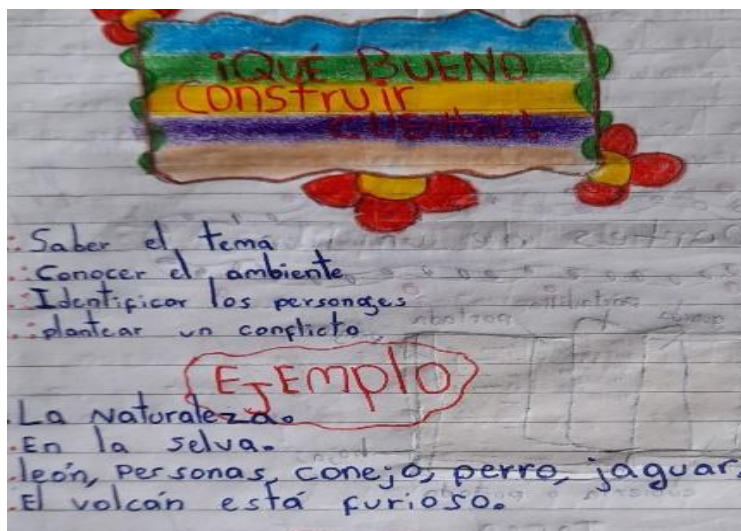 ¡QUÉ BUENO
Construir
cuentos!
: Saber el tema
: Conocer el ambiente
: Identificar los personajes
: plantear un conflicto
EJEMPlO
. La Naturaleza.
. En la selva.
. león, Personas, conejo, perro, jaguar.
. El volcán está furioso.